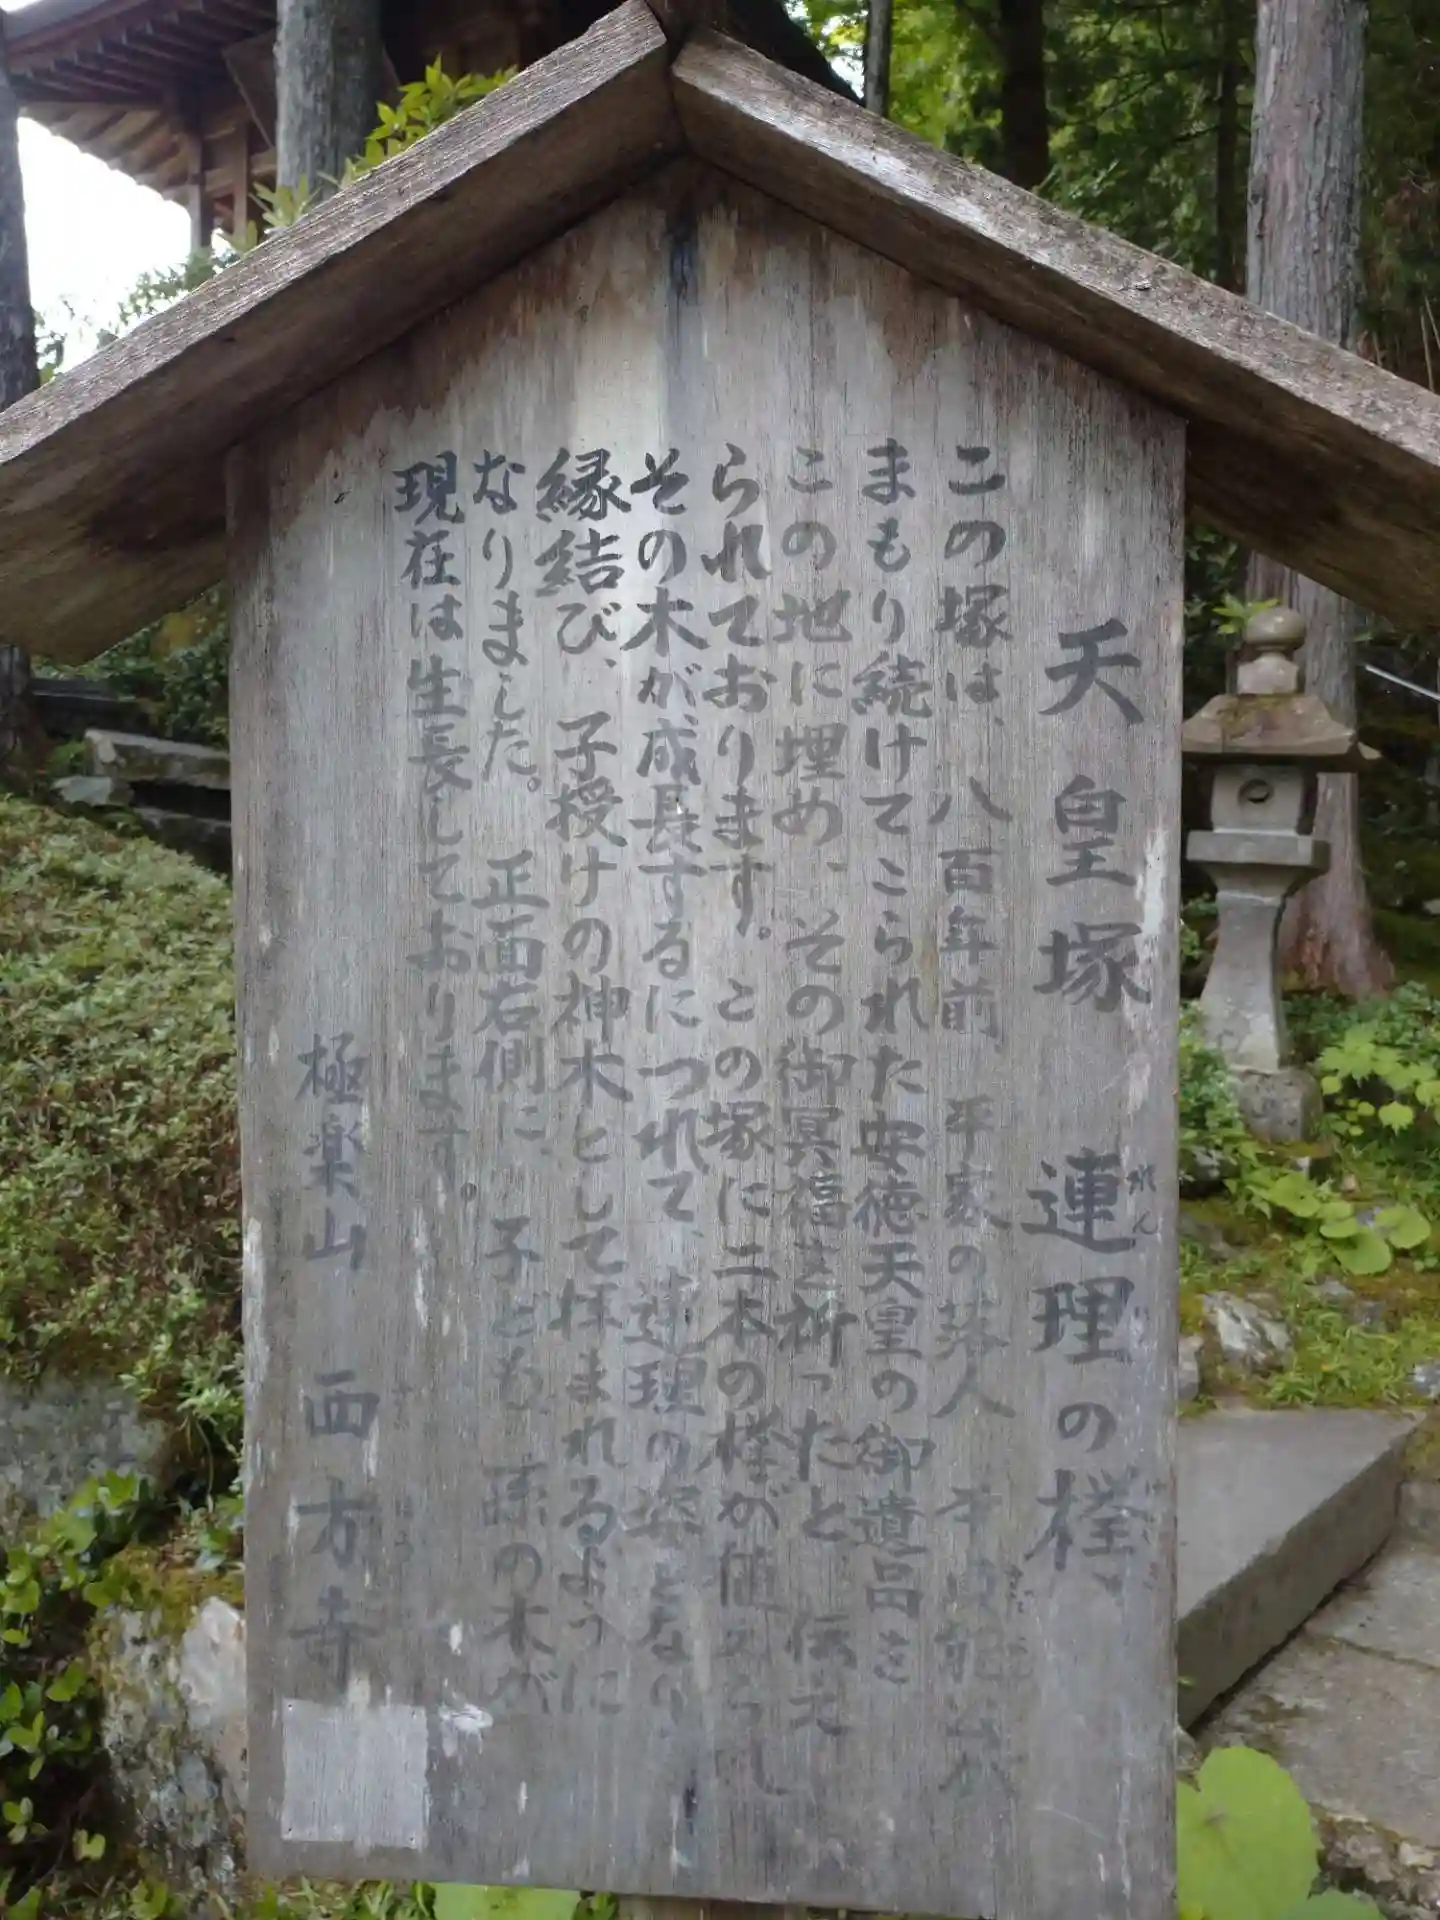 天皇塚 連理の欅
れん り けやき
この塚は、八百年前、平家の落人 平貞能公が
さだ よし
まもり続けてこられた安徳天皇の御遺品を
この地に埋め、その御冥福を祈ったと、伝え
られております。この塚に二本の欅が値えられ
その木が成長するにつれて、連理の姿となり、
縁結び、子授けの神木としておまれるように
なりました。正面右側に、子ども、孫の木が
現在は生長しております。
極楽山 西方寺